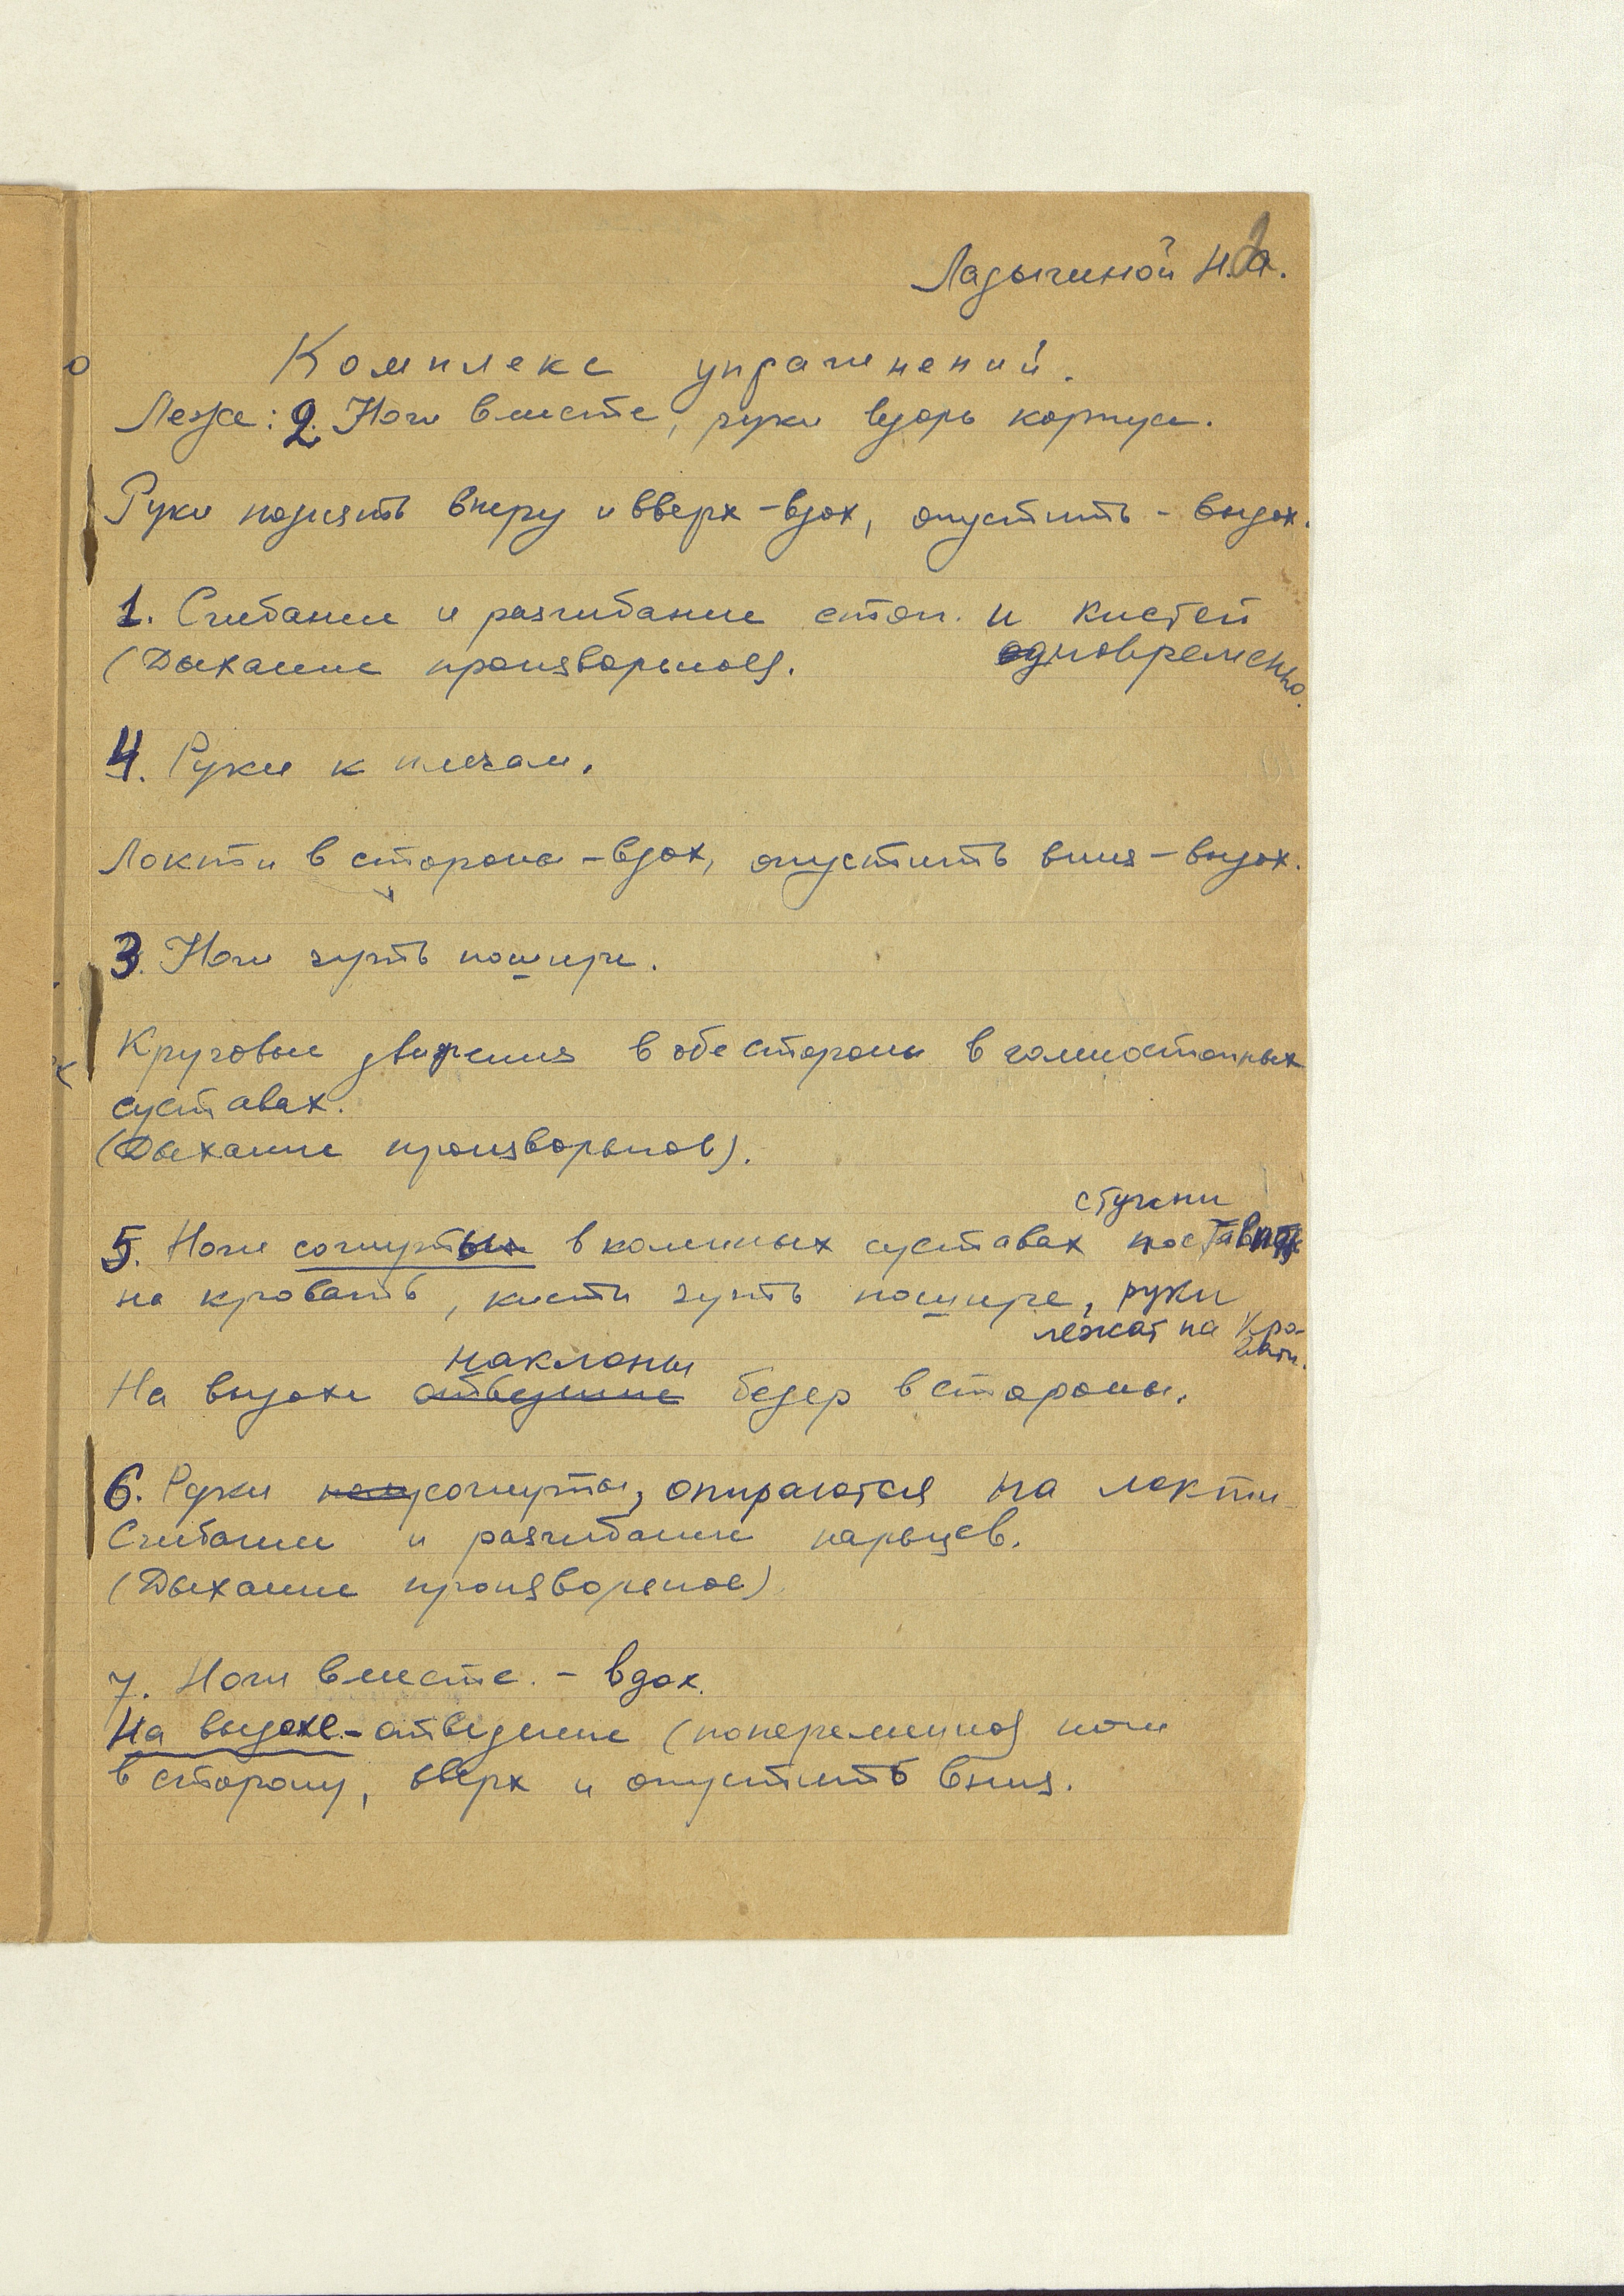 Ладыгиной Н.А.
Комплекс упражнений.
Лежа: 2. Ноги вместе, руки вдоль корпуса.
Руки поднять вперед и вверх - вдох, опустить - выдох.
1. Сгибание и разгибание стоп. и кистей
(Дыхание произвольное). одновременно.
4. Руки к плечам.
Локти в стороны - вдох, опустить вниз - выдох.
3. Ноги чуть пошире.
Круговые движения в обе стороны в голеностопных
суставах.
(Дыхание произвольное).
ступни
5. Ноги согнуты в коленных суставах поставить
на кровать, кисти чуть пошире, руки
лежат на кровати.
наклоны
На выдохе отведение бедер в стороны.
6. Руки полусогнуты, опираются на локти
Сгибание и разгибание пальцев.
(Дыхание произвольное)
7. Ноги вместе. - вдох.
На выдохе - отведение (попеременно) ноги
в сторону, вверх и опустить вниз.